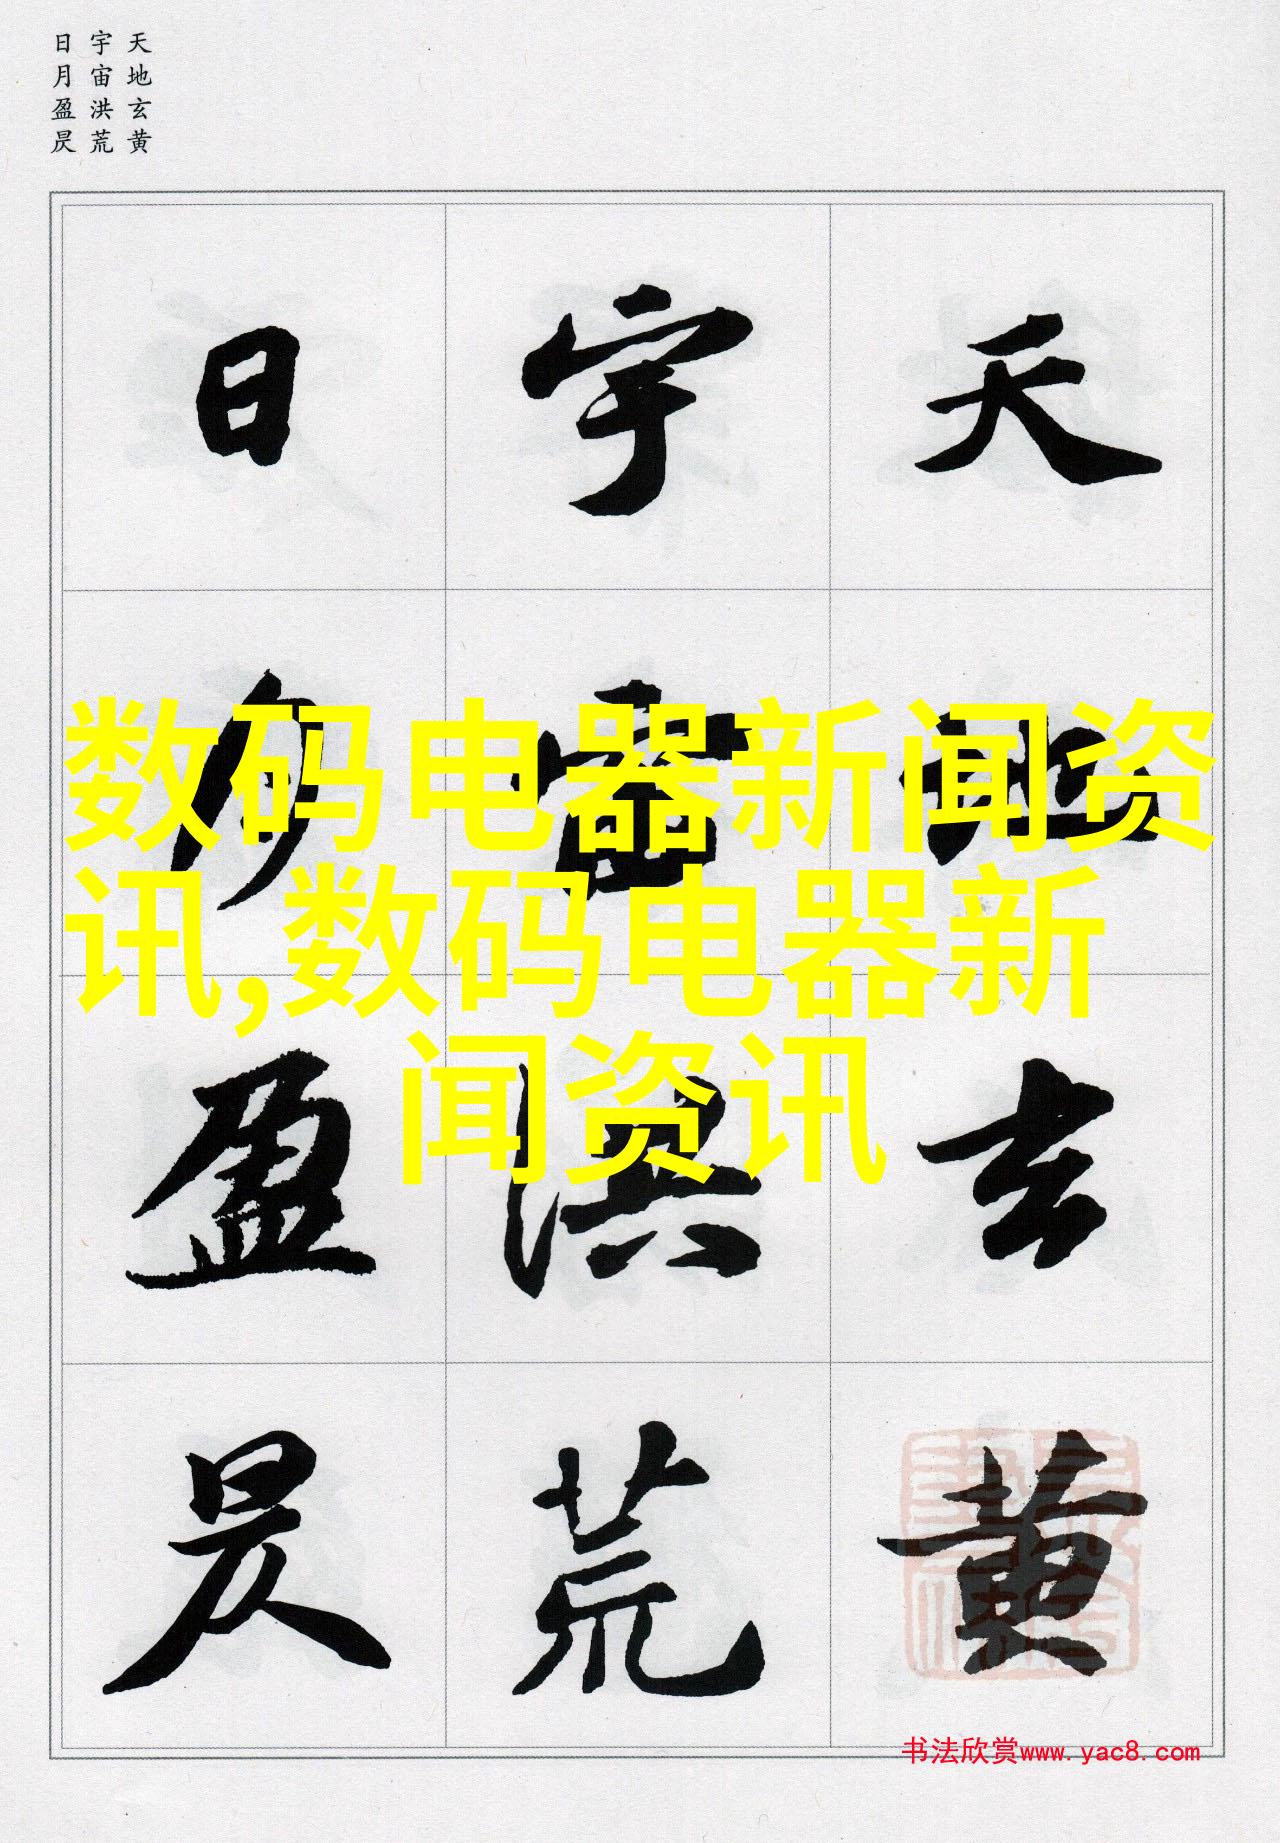 天地玄黄
宇宙洪荒
日月盈昃
天地玄黄
宇宙洪荒
日月盈昃
数码电器新闻资
讯,数码电器新
闻资讯
书法欣赏www.yac8.com